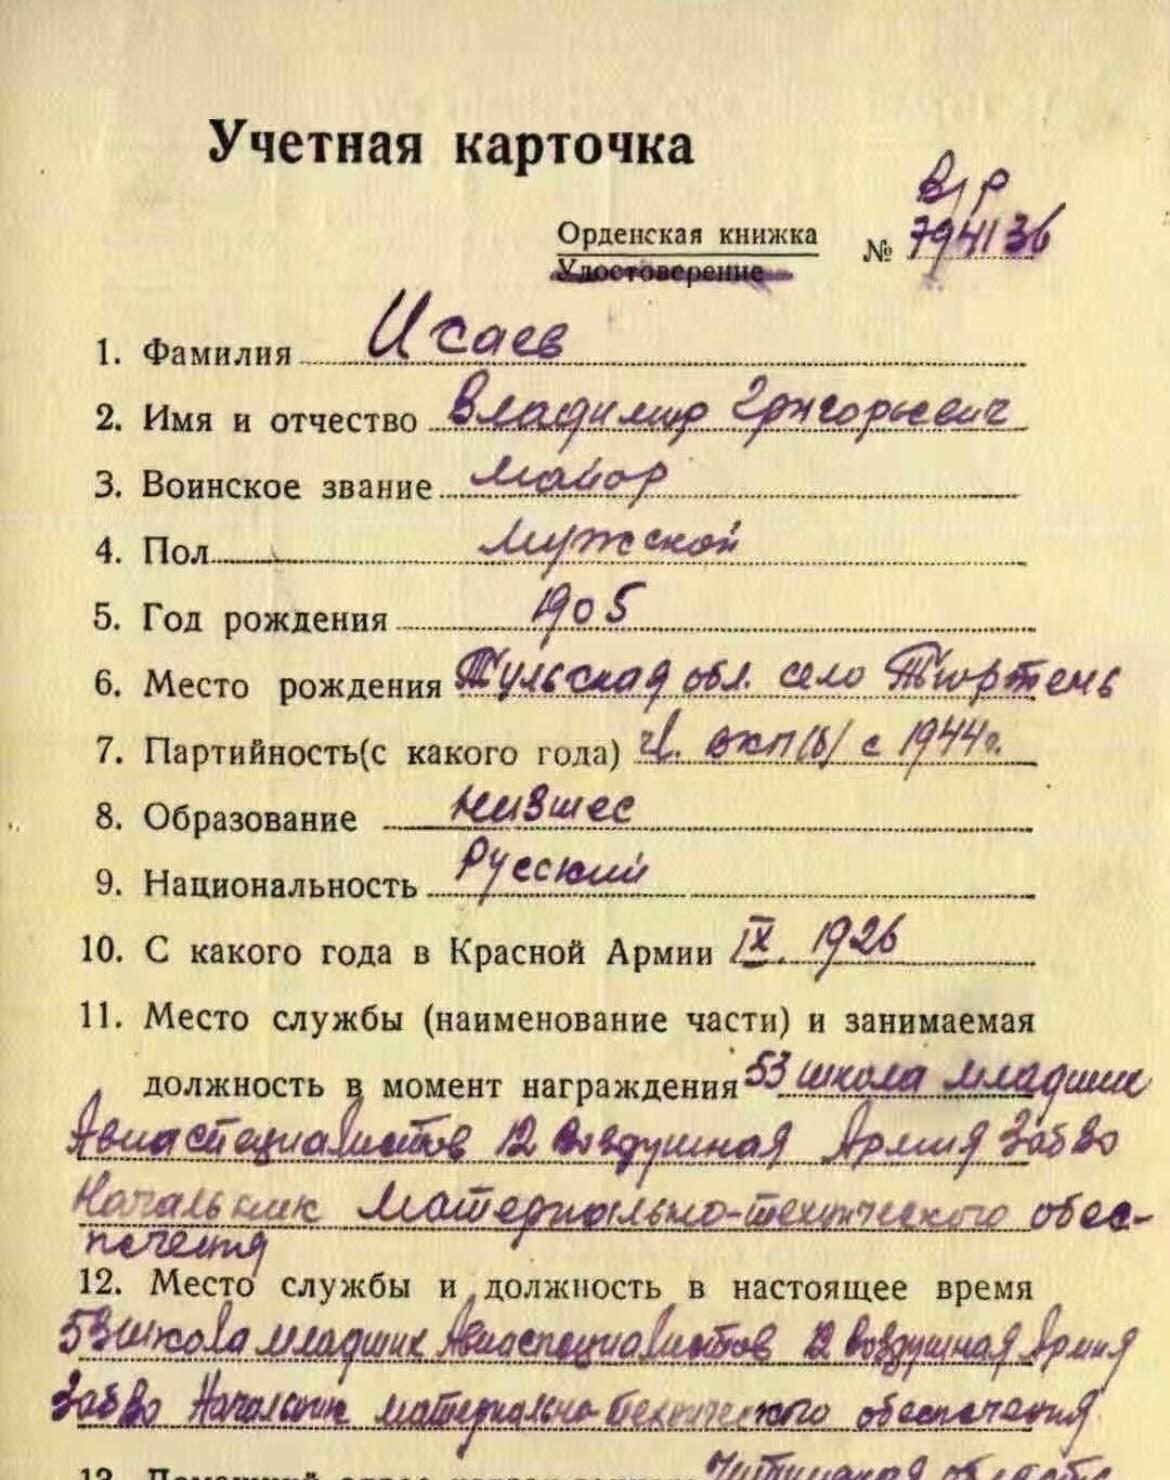 Учетная карточка
В/р
Орденская книжка № 794136
Удостоверение
1. Фамилия Исаев
2. Имя и отчество Владимир Григорьевич
3. Воинское звание Майор
4. Пол Мужской
5. Год рождения 1905
6. Место рождения Тульская обл. село Тюртень
7. Партийность(с какого года) чл. ВКП(б) с 1944г.
8. Образование низшее
9. Национальность Русский
10. С какого года в Красной Армии IX. 1926
11. Место службы (наименование части) и занимаемая
должность в момент награждения 53 школа младших
Авиаспециалистов 12 Воздушная Армия ЗабВО
Начальник Материально-технического обес-
печения
12. Место службы и должность в настоящее время
53 школа младших Авиаспециалистов 12 Воздушная Армия
ЗабВО Начальник материально-технического обеспечения
13. Читинская